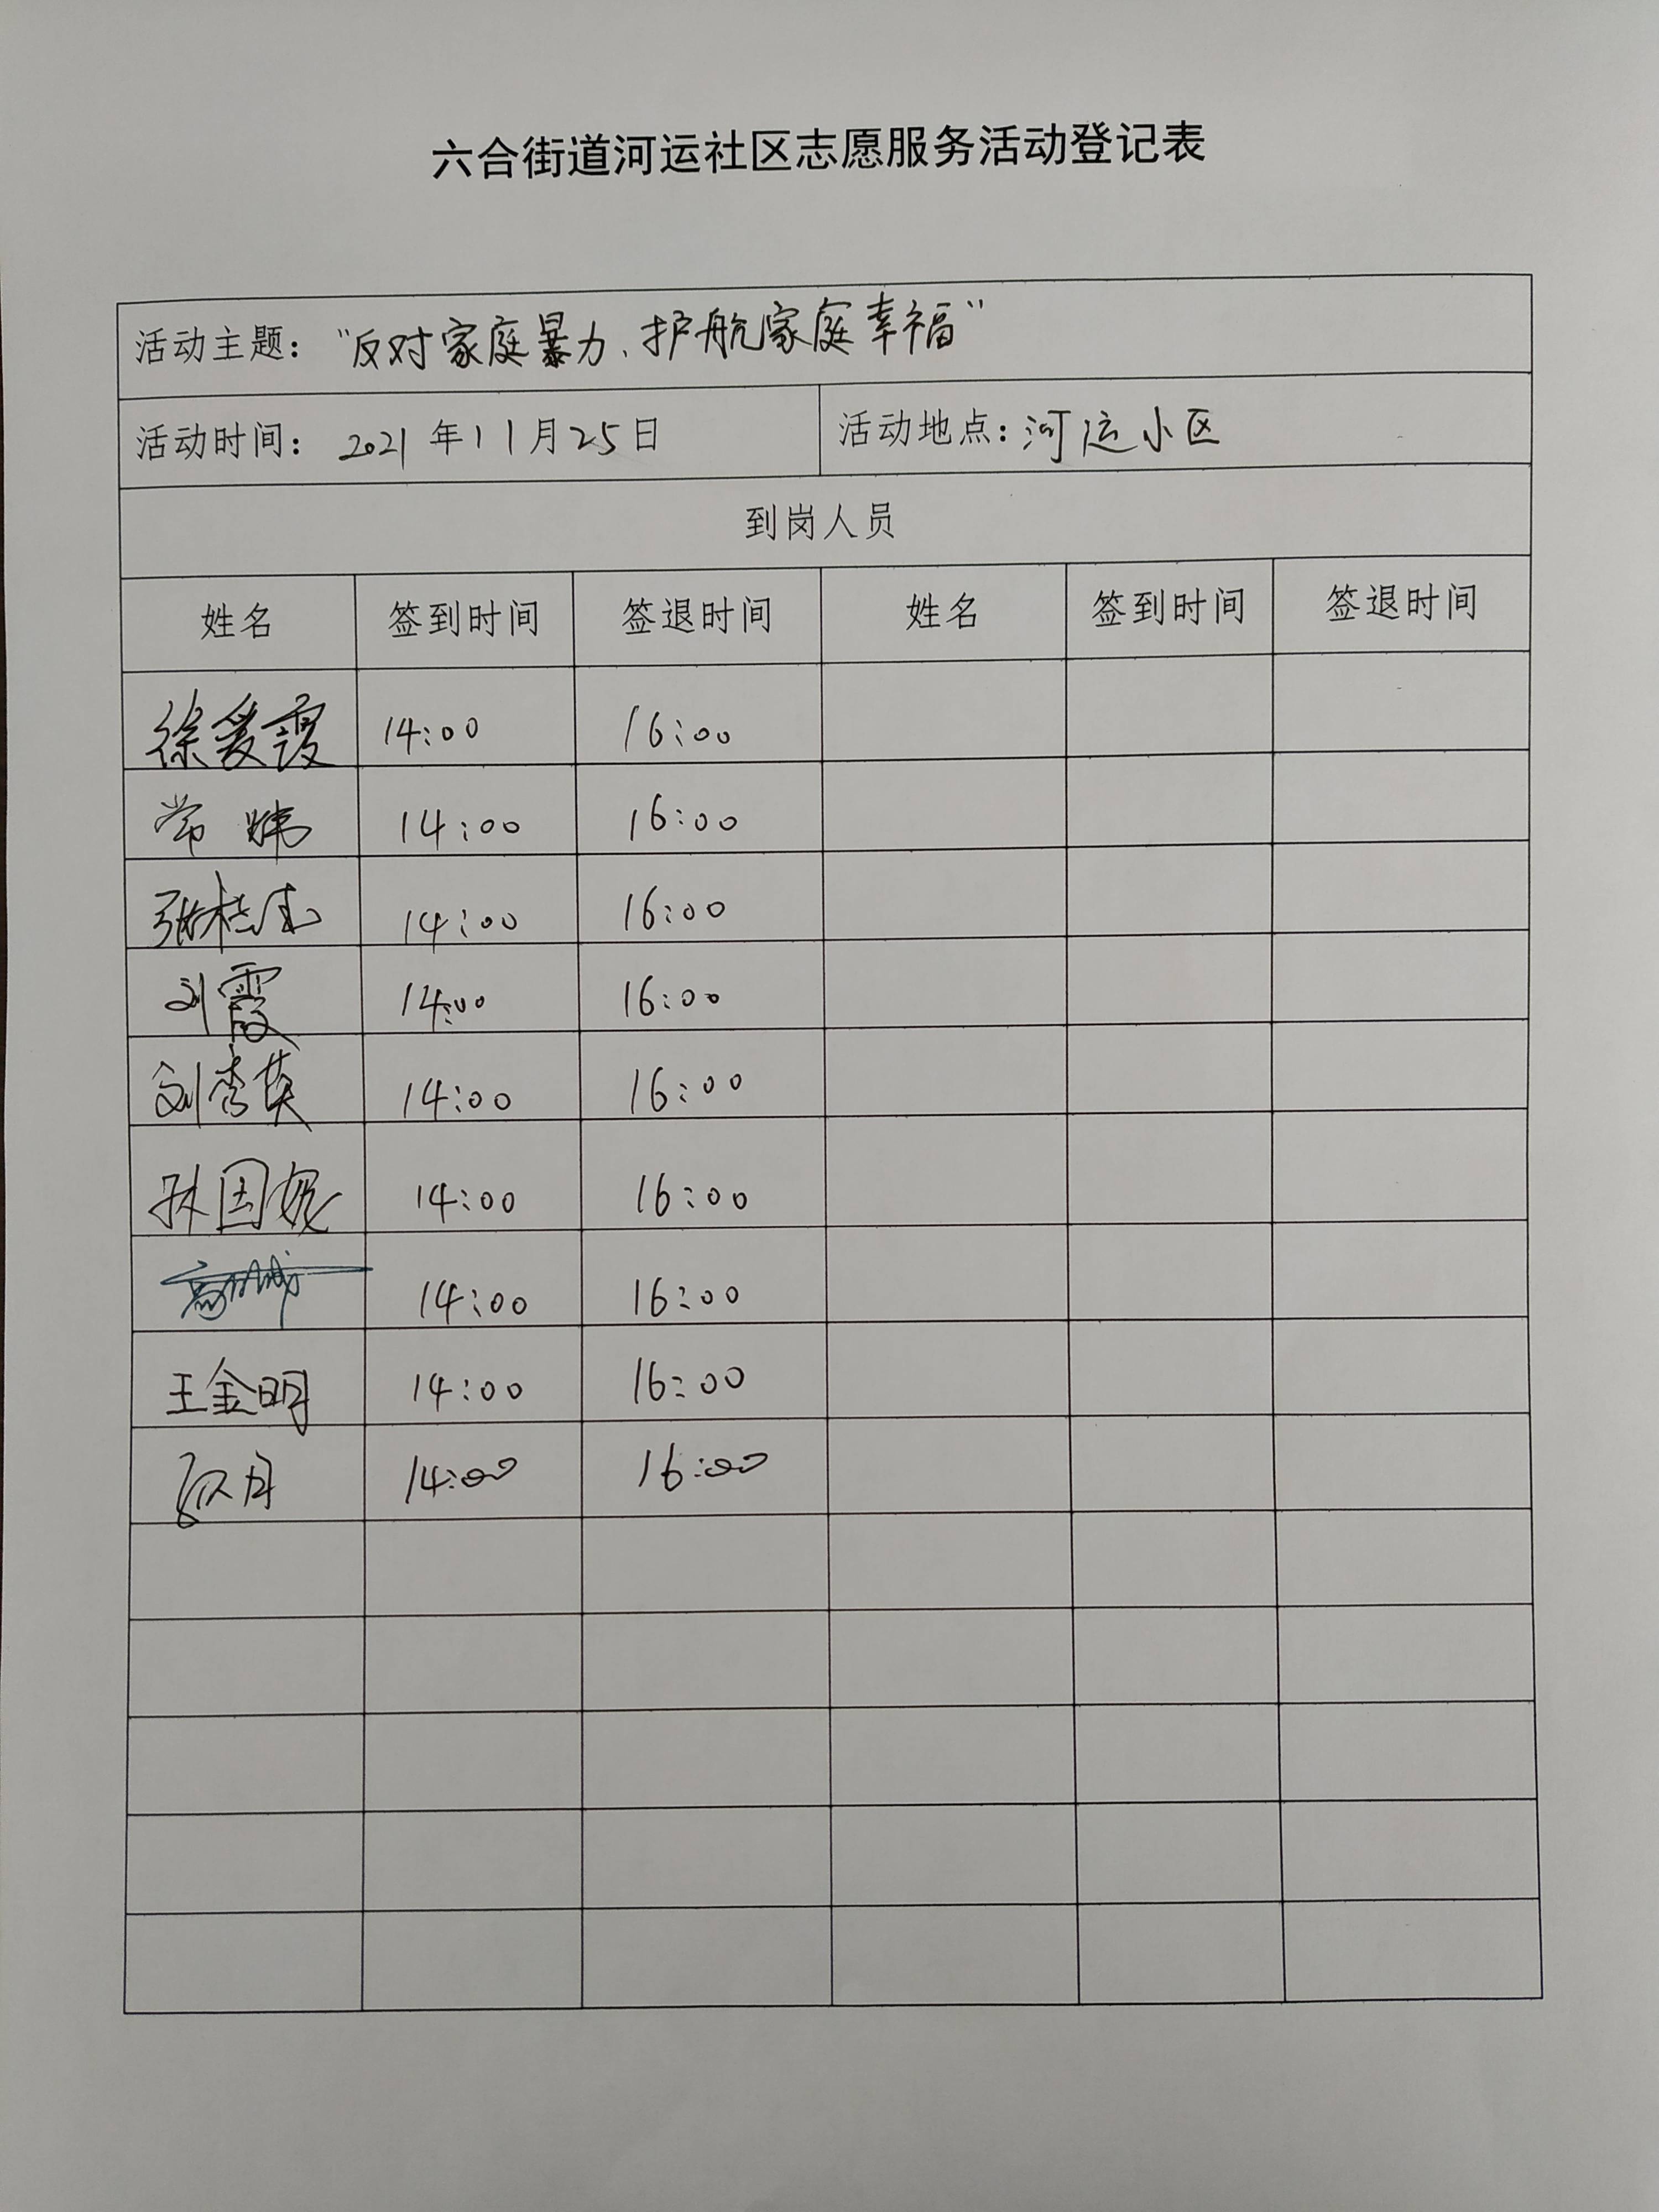 六合街道河运社区志愿服务活动登记表
活动主题：“反对家庭暴力、护航家庭幸福”
活动时间：2021年11月25日 活动地点：河运小区
到岗人员
姓名 签到时间 签退时间 姓名 签到时间 签退时间
徐爱霞 14:00 16:00
常炜 14:00 16:00
张桂 14:00 16:00
刘霞 14:00 16:00
刘秀英 14:00 16:00
孙国 14:00 16:00
高 14:00 16:00
王金明 14:00 16:00
月 14:00 16:00